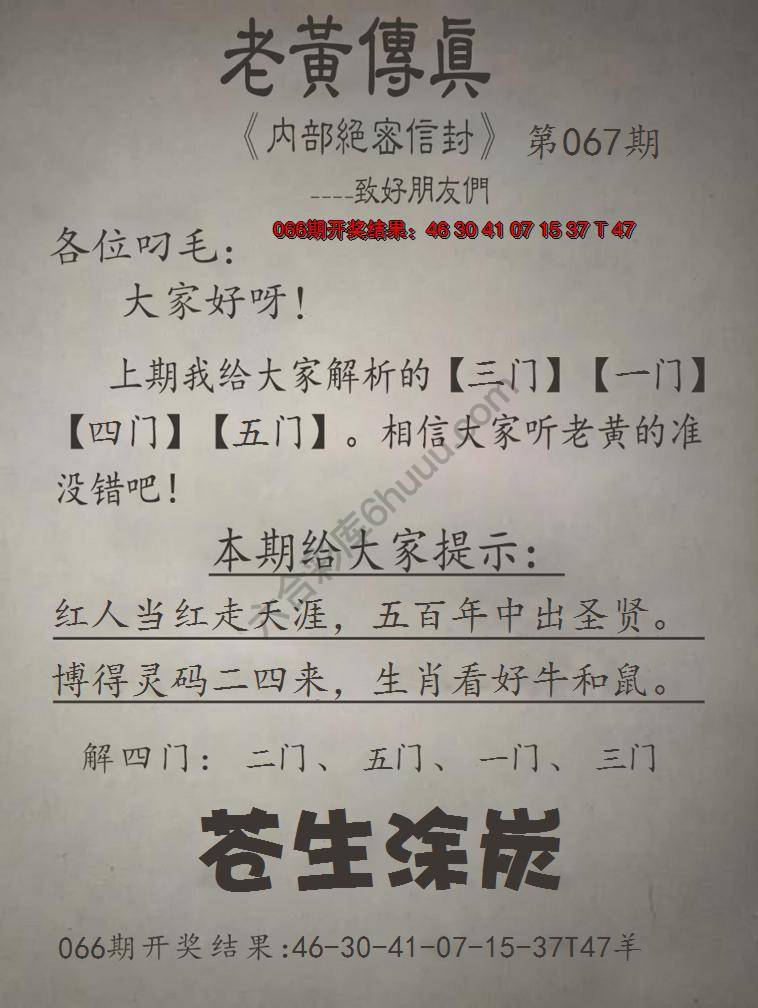 老黃傳真
《内部絕密信封》 第067期
----致好朋友們
066期开奖结果：46 30 41 07 15 37 T 47
各位叼毛：
大家好呀！
上期我给大家解析的【三门】【一门】
【四门】【五门】。相信大家听老黄的准
没错吧！
六合彩库6huuu.com
本期给大家提示：
红人当红走天涯，五百年中出圣贤。
博得灵码二四来，生肖看好牛和鼠。
解四门：二门、五门、一门、三门
苍生涂炭
066期开奖结果:46-30-41-07-15-37T47羊